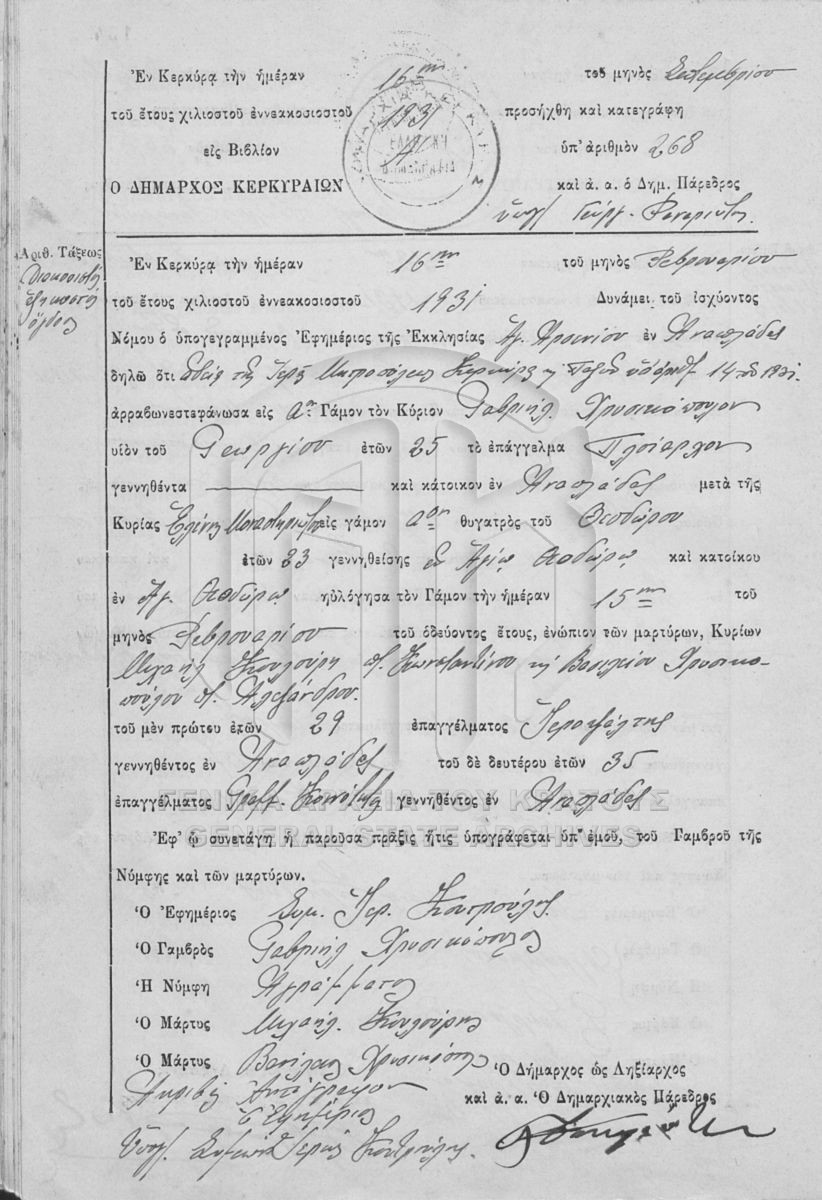 Ἐν Κερκύρᾳ τὴν ἡμέραν 16ην τοῦ μηνὸς Σεπτεμβρίου
τοῦ ἔτους χιλιοστοῦ ἐννεακοσιοστοῦ 1931 προσήχθη καὶ κατεγράφη
εἰς Βιβλίον Α ὑπ' ἀριθμὸν 268
Ο ΔΗΜΑΡΧΟΣ ΚΕΡΚΥΡΑΙΩΝ καὶ ἀ. α. ὁ Δημ. Πάρεδρος
Ὑπογ. Γεώργ.
Ἀριθ. Τάξεως
Διακοσιστὸς
ἑξηκοστὸς
ὄγδοος
Ἐν Κερκύρᾳ τὴν ἡμέραν 16ην τοῦ μηνὸς Φεβρουαρίου
τοῦ ἔτους χιλιοστοῦ ἐννεακοσιοστοῦ 1931 Δυνάμει τοῦ ἰσχύοντος
Νόμου ὁ ὑπογεγραμμένος Ἐφημέριος τῆς Ἐκκλησίας Ἁγ. Ἀρσενίου ἐν Αναπλάδες
δηλῶ ὅτι ἀδείᾳ τῆς Ἱερᾶς Μητροπόλεως Κερκύρας κ Παξῶν ὑπ' ἀριθ 14 του 1931
ἀρραβωνεστεφάνωσα εἰς Αον Γάμον τὸν Κύριον Γαβριήλ Χρυσικόπουλον
υἱὸν τοῦ Γεωργίου ἐτῶν 25 τὸ ἐπάγγελμα Πλοίαρχον
γεννηθέντα καὶ κάτοικον ἐν Αναπλάδες μετὰ τῆς
Κυρίας Ἑλένης εἰς γάμον Αον θυγατρὸς τοῦ Θεοδώρου
ἐτῶν 23 γεννηθείσης ἐν Ἁγίῳ Θεοδώρῳ καὶ κατοίκου
ἐν Ἁγ. Θεοδώρῳ ηὐλόγησα τὸν Γάμον τὴν ἡμέραν 15ην τοῦ
μηνὸς Φεβρουαρίου τοῦ ὁδεύοντος ἔτους, ἐνώπιον τῶν μαρτύρων, Κυρίων
Μιχαήλ Κουλούρη τ. Κωνσταντίνου κ Βασιλείου Χρυσικο-
πούλου τ. Αλεξάνδρου.
τοῦ μὲν πρώτου ἐτῶν 29 ἐπαγγέλματος Ἱεροψάλτης
γεννηθέντος ἐν Αναπλάδες τοῦ δὲ δευτέρου ἐτῶν 35
ἐπαγγέλματος Γραμ. Κοινότητος γεννηθέντος ἐν Αναπλάδες
ΓΕΝΙΚΑ ΑΡΧΕΙΑ ΤΟΥ ΚΡΑΤΟΥΣ
GENERAL STATE ARCHIVES
Ἐφ' ᾧ συνετάγη ἡ παροῦσα πράξις ἥτις ὑπογράφεται ὑπ' ἐμοῦ, τοῦ Γαμβροῦ τῆς
Νύμφης καὶ τῶν μαρτύρων.
Ὁ Ἐφημέριος Συμ. Ἱερ. Κουτρούλης
Ὁ Γαμβρὸς Γαβριήλ Χρυσικόπουλος
Ἡ Νύμφη Αγράμματος
Ὁ Μάρτυς Μιχαήλ Κουλούρης
Ὁ Μάρτυς Βασίλειος Χρυσικόπουλος
Ὁ Δήμαρχος ὡς Ληξίαρχος
Ακριβὲς Αντίγραφον καὶ ἀ. α. Ὁ Δημαρχιακὸς Πάρεδρος
Ὁ Ἐφημέριος
Ὑπογ. Συμεών Ἱερεὺς Κουτρούλης